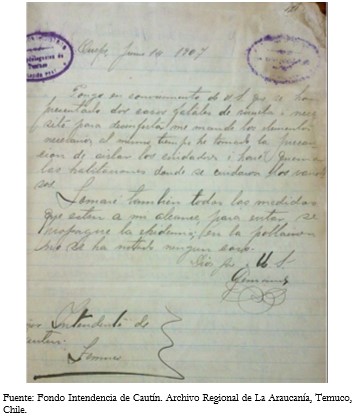 Quepe, Junio 14 1907
Pongo en conocimiento de U.S. que se han
presentado dos casos fatales de viruela i nece
sito para desinfectar me mande los elementos
necesarios al mismo tiempo he tomado la precau
cion de aislar los cuidadores i haré quemar
las habitaciones donde se cuidaron los vario
sos.
Tomaré también todas las medidas
que esten a mi alcance para evitar se
propague la epidemia; en la poblacion
no se ha notado ningun caso.
Dios gue. a U.S.
Intendente de
Temuco
Fuente: Fondo Intendencia de Cautín. Archivo Regional de La Araucanía, Temuco,
Chile.